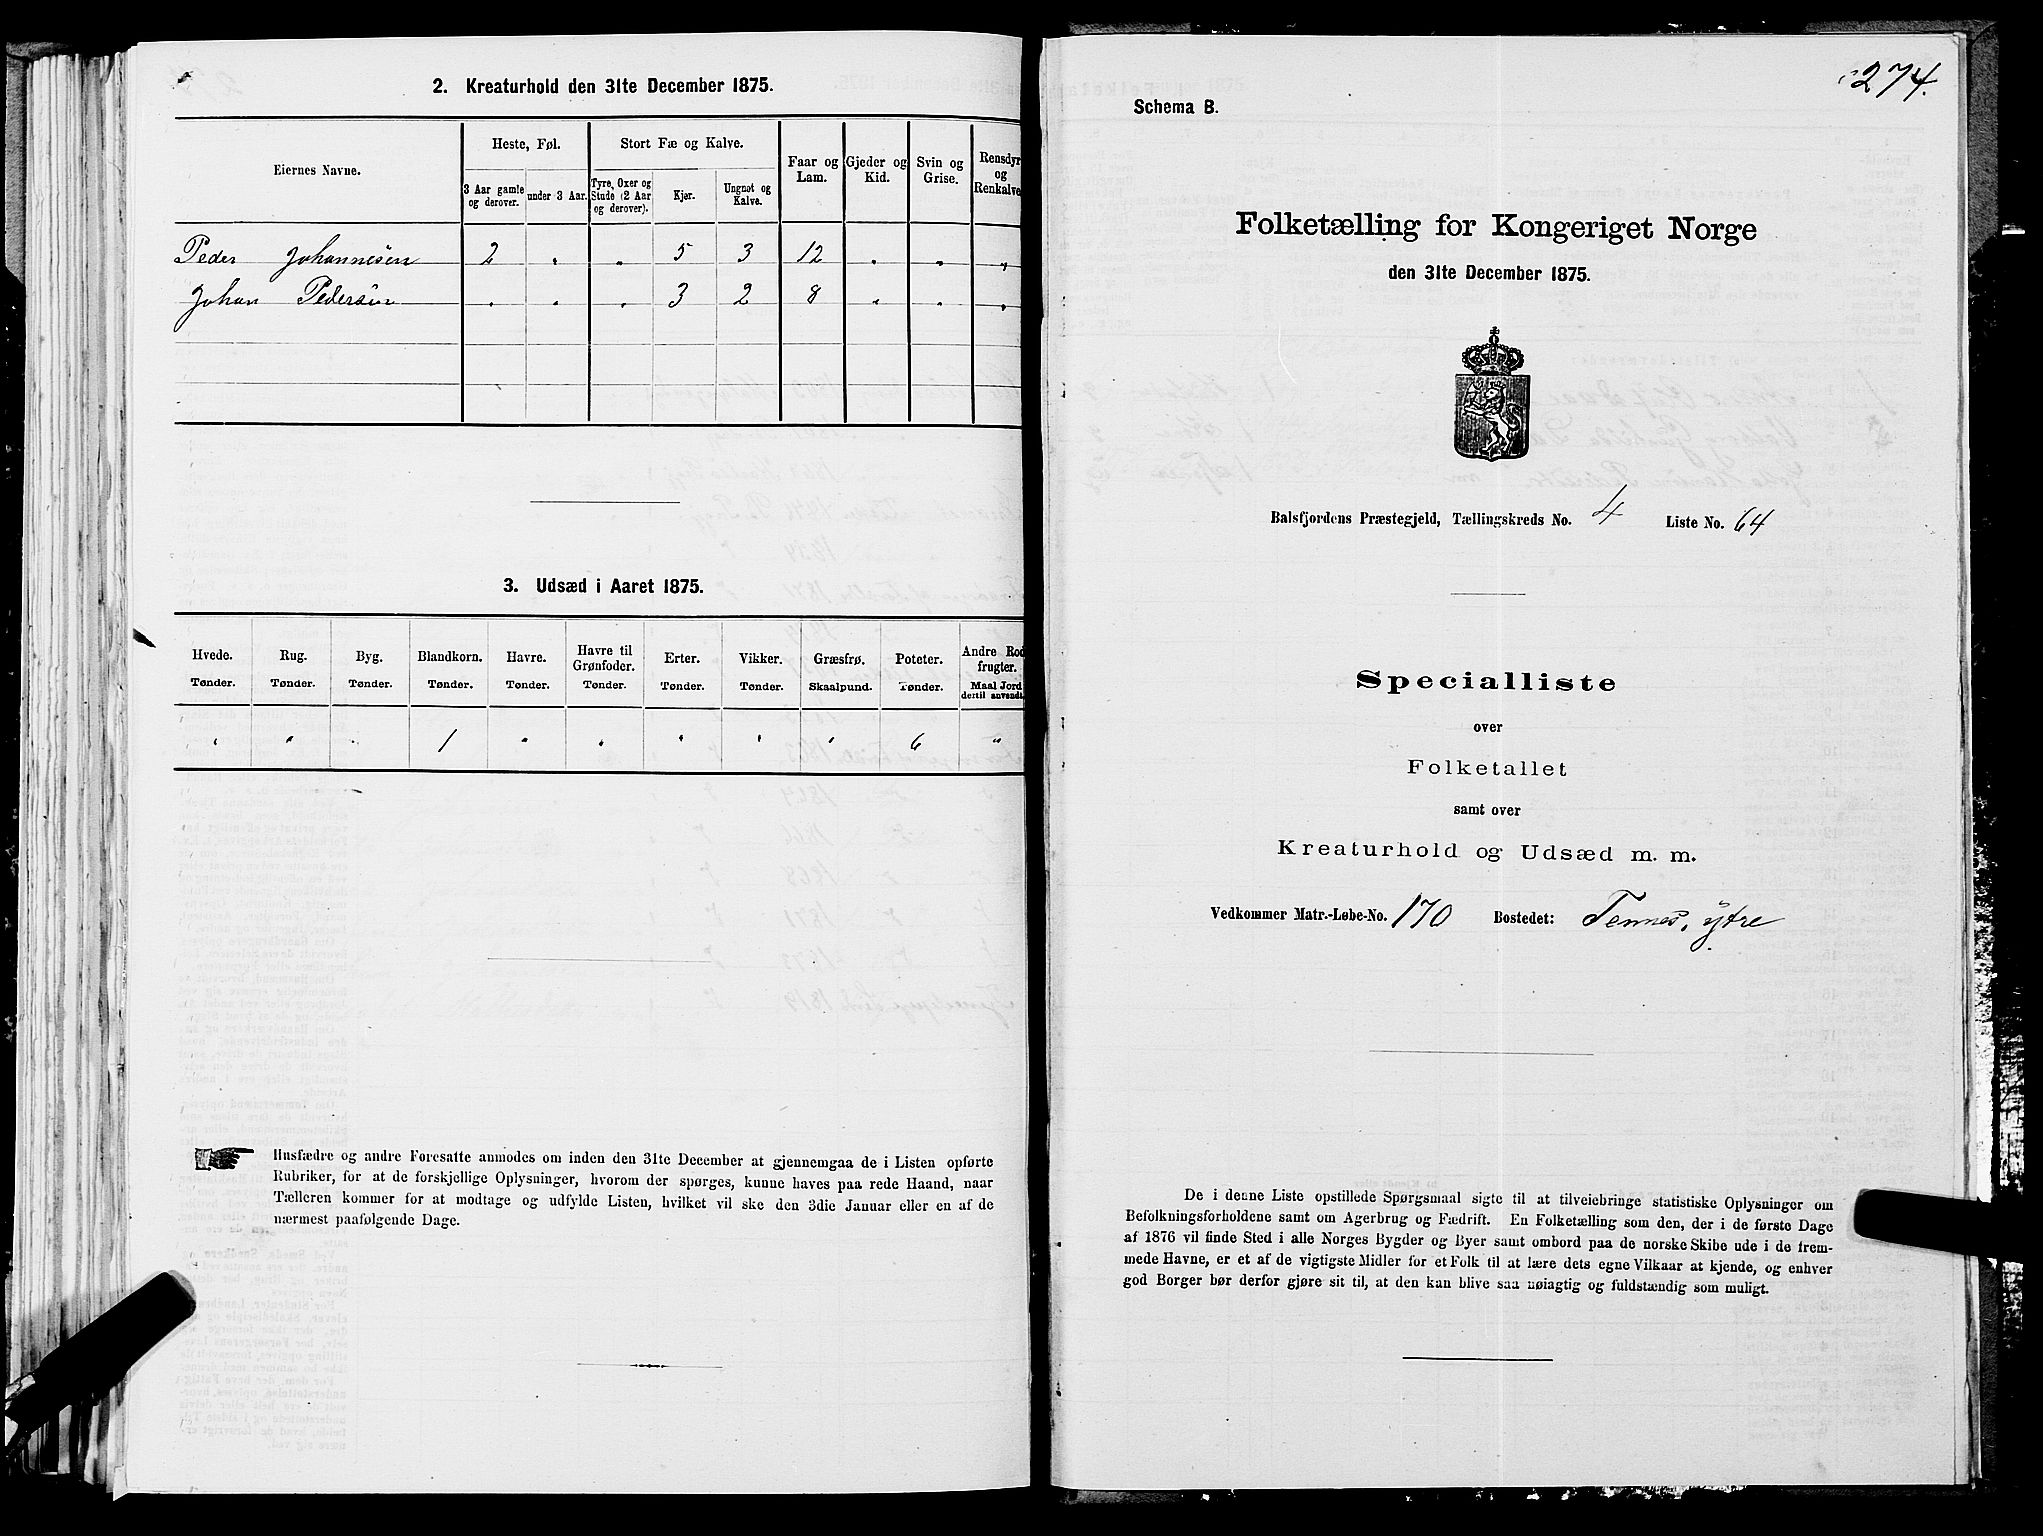 2. Kreaturhold den 31te December 1875.
Eiernes Navne.
Heste, Føl.
Stort Fæ og Kalve.
Faar og Lam.
Gjeder og Kid.
Svin og Grise.
Rensdyr og Renkalve
3 Aar gamle og derover.
under 3 Aar.
Tyre, Oxer og Stude (2 Aar og derover).
Kjør.
Ungnøt og Kalve.
Peder Johannesen 2 " " 5 3 12 " " "
Johan Pedersen " " " 3 2 8 " " "
3. Udsæd i Aaret 1875.
Hvede. Rug. Byg. Blandkorn. Havre. Havre til Grønfoder. Erter. Vikker. Græsfrø. Poteter. Andre Rodfrugter.
Tønder. Tønder. Tønder. Tønder. Tønder. Tønder. Tønder. Tønder. Skaalpund. Tønder. Maal Jord dertil anvendt.
" " " 1 " " " " " 6 "
Husfædre og andre Foresatte anmodes om inden den 31te December at gjennemgaa de i Listen opførte
Rubriker, for at de forskjellige Oplysninger, hvorom der spørges, kunne haves paa rede Haand, naar
Tælleren kommer for at modtage og udfylde Listen, hvilket vil ske den 3die Januar eller en af de
nærmest paafølgende Dage.
274.
Schema B.
Folketælling for Kongeriget Norge
den 31te December 1875.
Balsfjordens Præstegjeld, Tællingskreds No. 4 Liste No. 64
Specialliste
over
Folketallet
samt over
Kreaturhold og Udsæd m. m.
Vedkommer Matr.-Løbe-No. 170 Bostedet: Tennes, ytre
De i denne Liste opstillede Spørgsmaal sigte til at tilveiebringe statistiske Oplysninger om
Befolkningsforholdene samt om Agerbrug og Fædrift. En Folketælling som den, der i de første Dage
af 1876 vil finde Sted i alle Norges Bygder og Byer samt ombord paa de norske Skibe ude i de frem-
mede Havne, er et af de vigtigste Midler for et Folk til at lære dets egne Vilkaar at kjende, og enhver
god Borger bør derfor gjøre sit til, at den kan blive saa nøiagtig og fuldstændig som muligt.